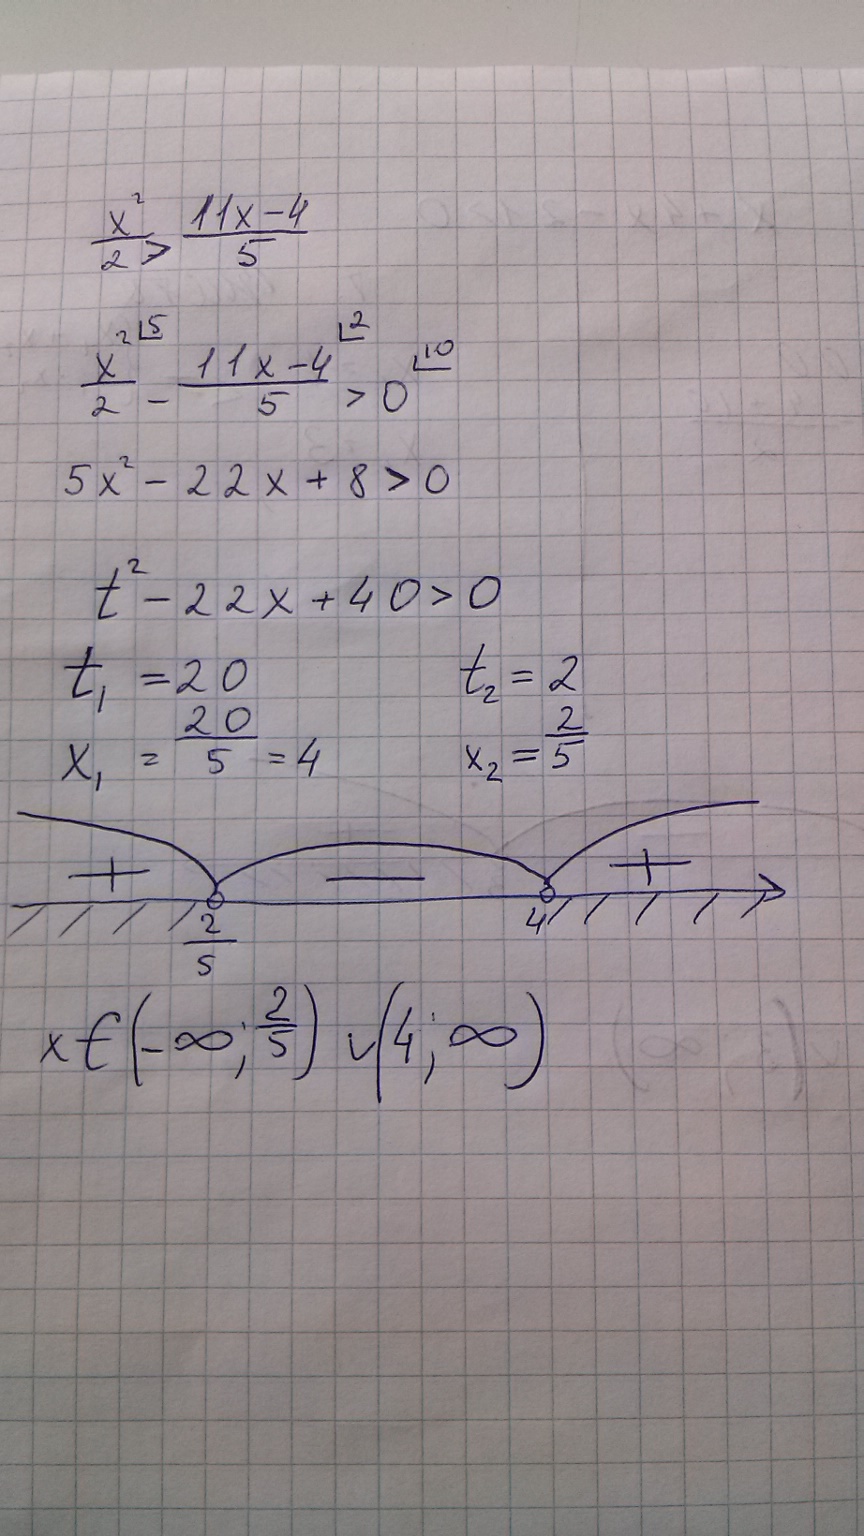 x²/2 > (11x-4)/5
x²/2 ⌊5 - (11x-4)/5 ⌊2 > 0 ⌊10
5x² - 22x + 8 > 0
t² - 22x + 40 > 0
t₁ = 20 t₂ = 2
x₁ = 20/5 = 4 x₂ = 2/5
+ — +
2/5 4
x ∈ (-∞; 2/5) ∪ (4; ∞)